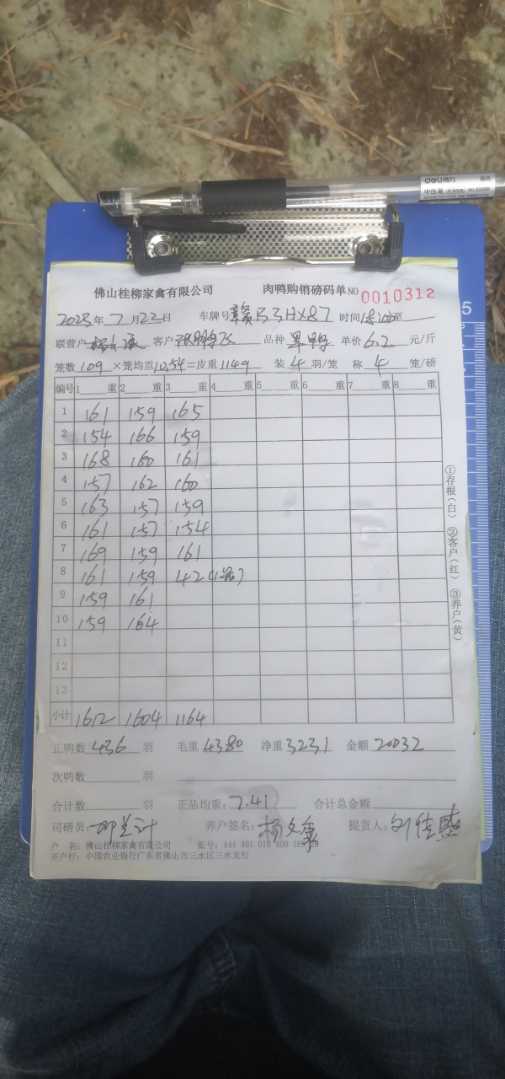 佛山桂柳家禽有限公司 肉鸭购销磅码单 NO 0010312
年 7 月 22 日 车牌号 时间
联营户 客户 品种 单价 6.2 元/斤
笼数 109 ×笼均重 10.54 =皮重 1149 装 4 羽/笼 称 4 笼/磅
编号 1 重 2 重 3 重 4 重 5 重 6 重 7 重 8 重
1 161 159 165
2 154 166 159
3 168 160 161
4 157 162 160
5 163 157 159
6 161 157 154
7 169 159 161
8 161 159 42
9 159 161
10 159 164
11
12
13
小计 1612 1604 1164
正鸭数 436 羽 毛重 4380 净重 3231 金额 20032
次鸭数 羽
合计数 羽 正品均重: 7.41 合计总金额
司磅员 养户签名: 提货人:
户 名: 佛山桂柳家禽有限公司 账号:
开户行: 中国农业银行广东省佛山市三水区三水支行
①存根(白) ②客户(红) ③养户(黄)
deli